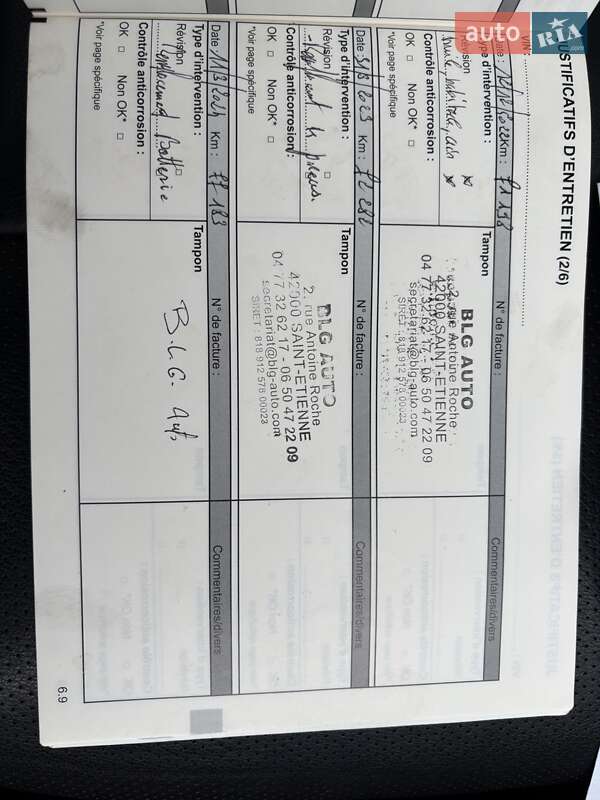 auto RIA .com
JUSTIFICATIFS D'ENTRETIEN (2/6)
VIN :
Date : 12/12/2022 Km : 71 198
N° de facture :
Commentaires/divers
Type d'intervention :
Révision
Contrôle anticorrosion :
OK □ Non OK* □
*Voir page spécifique
Tampon
BLG AUTO
2, rue Antoine Roche
42000 SAINT-ETIENNE
04 77 32 62 17 - 06 50 47 22 09
secretariat@blg-auto.com
SIRET : 818 912 578 00023
Date : 3/3/2023 Km : 72 282
N° de facture :
Commentaires/divers
Type d'intervention :
Révision
Contrôle anticorrosion :
OK □ Non OK* □
*Voir page spécifique
Tampon
BLG AUTO
2, rue Antoine Roche
42000 SAINT-ETIENNE
04 77 32 62 17 - 06 50 47 22 09
secretariat@blg-auto.com
SIRET : 818 912 578 00023
Date : 11/3/2024 Km : 77 183
N° de facture :
Commentaires/divers
Type d'intervention :
Révision
Remplacement Batterie
Contrôle anticorrosion :
OK □ Non OK* □
*Voir page spécifique
Tampon
B.L.G. Auto
6.9